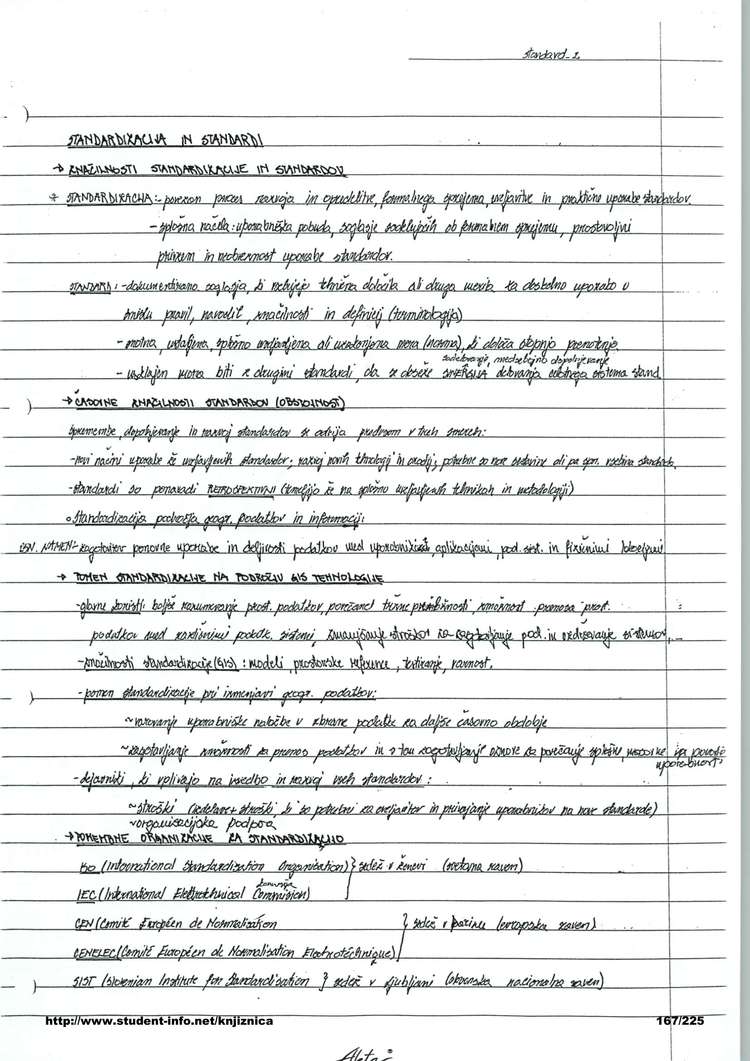 standard_2
STANDARDIZACIJA IN STANDARDI
→ ZNAČILNOSTI STANDARDIZACIJE IN STANDARDOV
STANDARDIZACIJA: - povezan proces razvoja in opredelitve, formalnega sprejema, uveljavitve in praktične uporabe standardov.
- splošna načela: uporabniška pobuda, soglasje sodelujočih ob formalnem sprejemu, prostovoljni
privzem in neobveznost uporabe standardov.
STANDARD: - dokumentirano soglasje, ki vsebuje tehnična določila ali druga merila za dosledno uporabo v
smislu pravil, navodil, značilnosti in definicij (terminologija)
- splošno uveljavljena ali uzakonjena mera (norma), ki določa stopnjo
sodelovanje, medsebojno dopolnjevanje
- usklajen mora biti z drugimi standardi, da se doseže SINERGIJA delovanja celotnega sistema stand.
→ ČASOVNE ZNAČILNOSTI STANDARDOV (OBSTOJNOST)
spremembe, dopolnjevanje in razvoj standardov se odvija predvsem v treh smereh:
- novi načini uporabe že uveljavljenih standardov; razvoj novih tehnologij in orodij; potrebne so nove sestavine ali pa vsebina standarda.
- standardi so ponavadi RETROSPEKTIVNI (temeljijo že na splošno uveljavljenih tehnikah in metodologiji)
○ Standardizacija področja geogr. podatkov in informacij:
OSN. NAMEN: - zagotovitev ponovne uporabe in deljivosti podatkov med uporabniki, aplikacijami, pod. sist. in fizičnimi lokacijami
→ POMEN STANDARDIZACIJE NA PODROČJU GIS TEHNOLOGIJE
- glavne koristi: boljše razumevanje prost. podatkov, povečanje tržne zmožnost prenosa prost.
podatkov med različnimi podatk. sistemi, zmanjšanje stroškov za zagotavljanje pod. in vzdrževanje sistemov,...
- značilnosti standardizacije (GIS): modeli, prostorske reference, testiranje, varnost.
- pomen standardizacije pri izmenjavi geogr. podatkov:
~ varovanje uporabniške naložbe v izbrane podatke za daljše časovno obdobje
~ zagotavljanje zmožnosti za prenos podatkov in s tem zagotavljanje osnove za povečanje splošne uporabnosti
- dejavniki, ki vplivajo na izvedbo in razvoj vseh standardov:
~ stroški (sredstva + stroški, ki so potrebni za uveljavitev in privajanje uporabnikov na nove standarde)
~ organizacijska podpora
→ POMEMBNE ORGANIZACIJE ZA STANDARDIZACIJO
ISO (International Standardization Organisation) } sedež v Ženevi (svetovna raven)
IEC (International Elektrotehnical Commission)
CEN (Comité Européen de Normalisation } sedež v (evropska raven)
CENELEC (Comité Européen de Normalisation Electrotéchnique)
SIST (Slovenian Institute for Standardisation } sedež v Ljubljani (slovenska nacionalna raven)
http://www.student-info.net/knjiznica
167/225